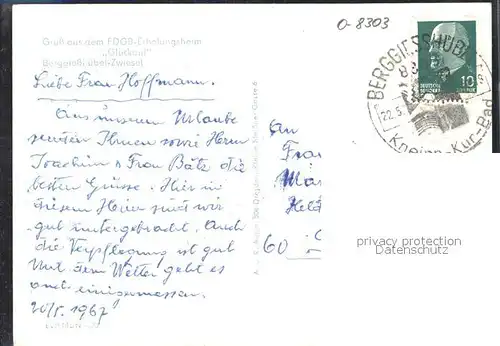 Gruß aus dem FDGB-Erholungsheim
"Glückauf"
Berggießhübel-Zwiesel
Liebe Frau Hoffmann.
Aus unserem Urlaube
senden Ihnen sowie Herrn
Joachim u Frau Bäte die
besten Grüsse. Hier in
diesem Heim sind wir
gut untergebracht. Auch
die Verpflegung ist gut
Mit dem Wetter geht es
auch einigermassen.
20/5. 1967
O-8303
BERGGIESSHÜBEL
Kneipp-Kur-Bad
22.5.
10
an
Frau
60
privacy protection
Datenschutz